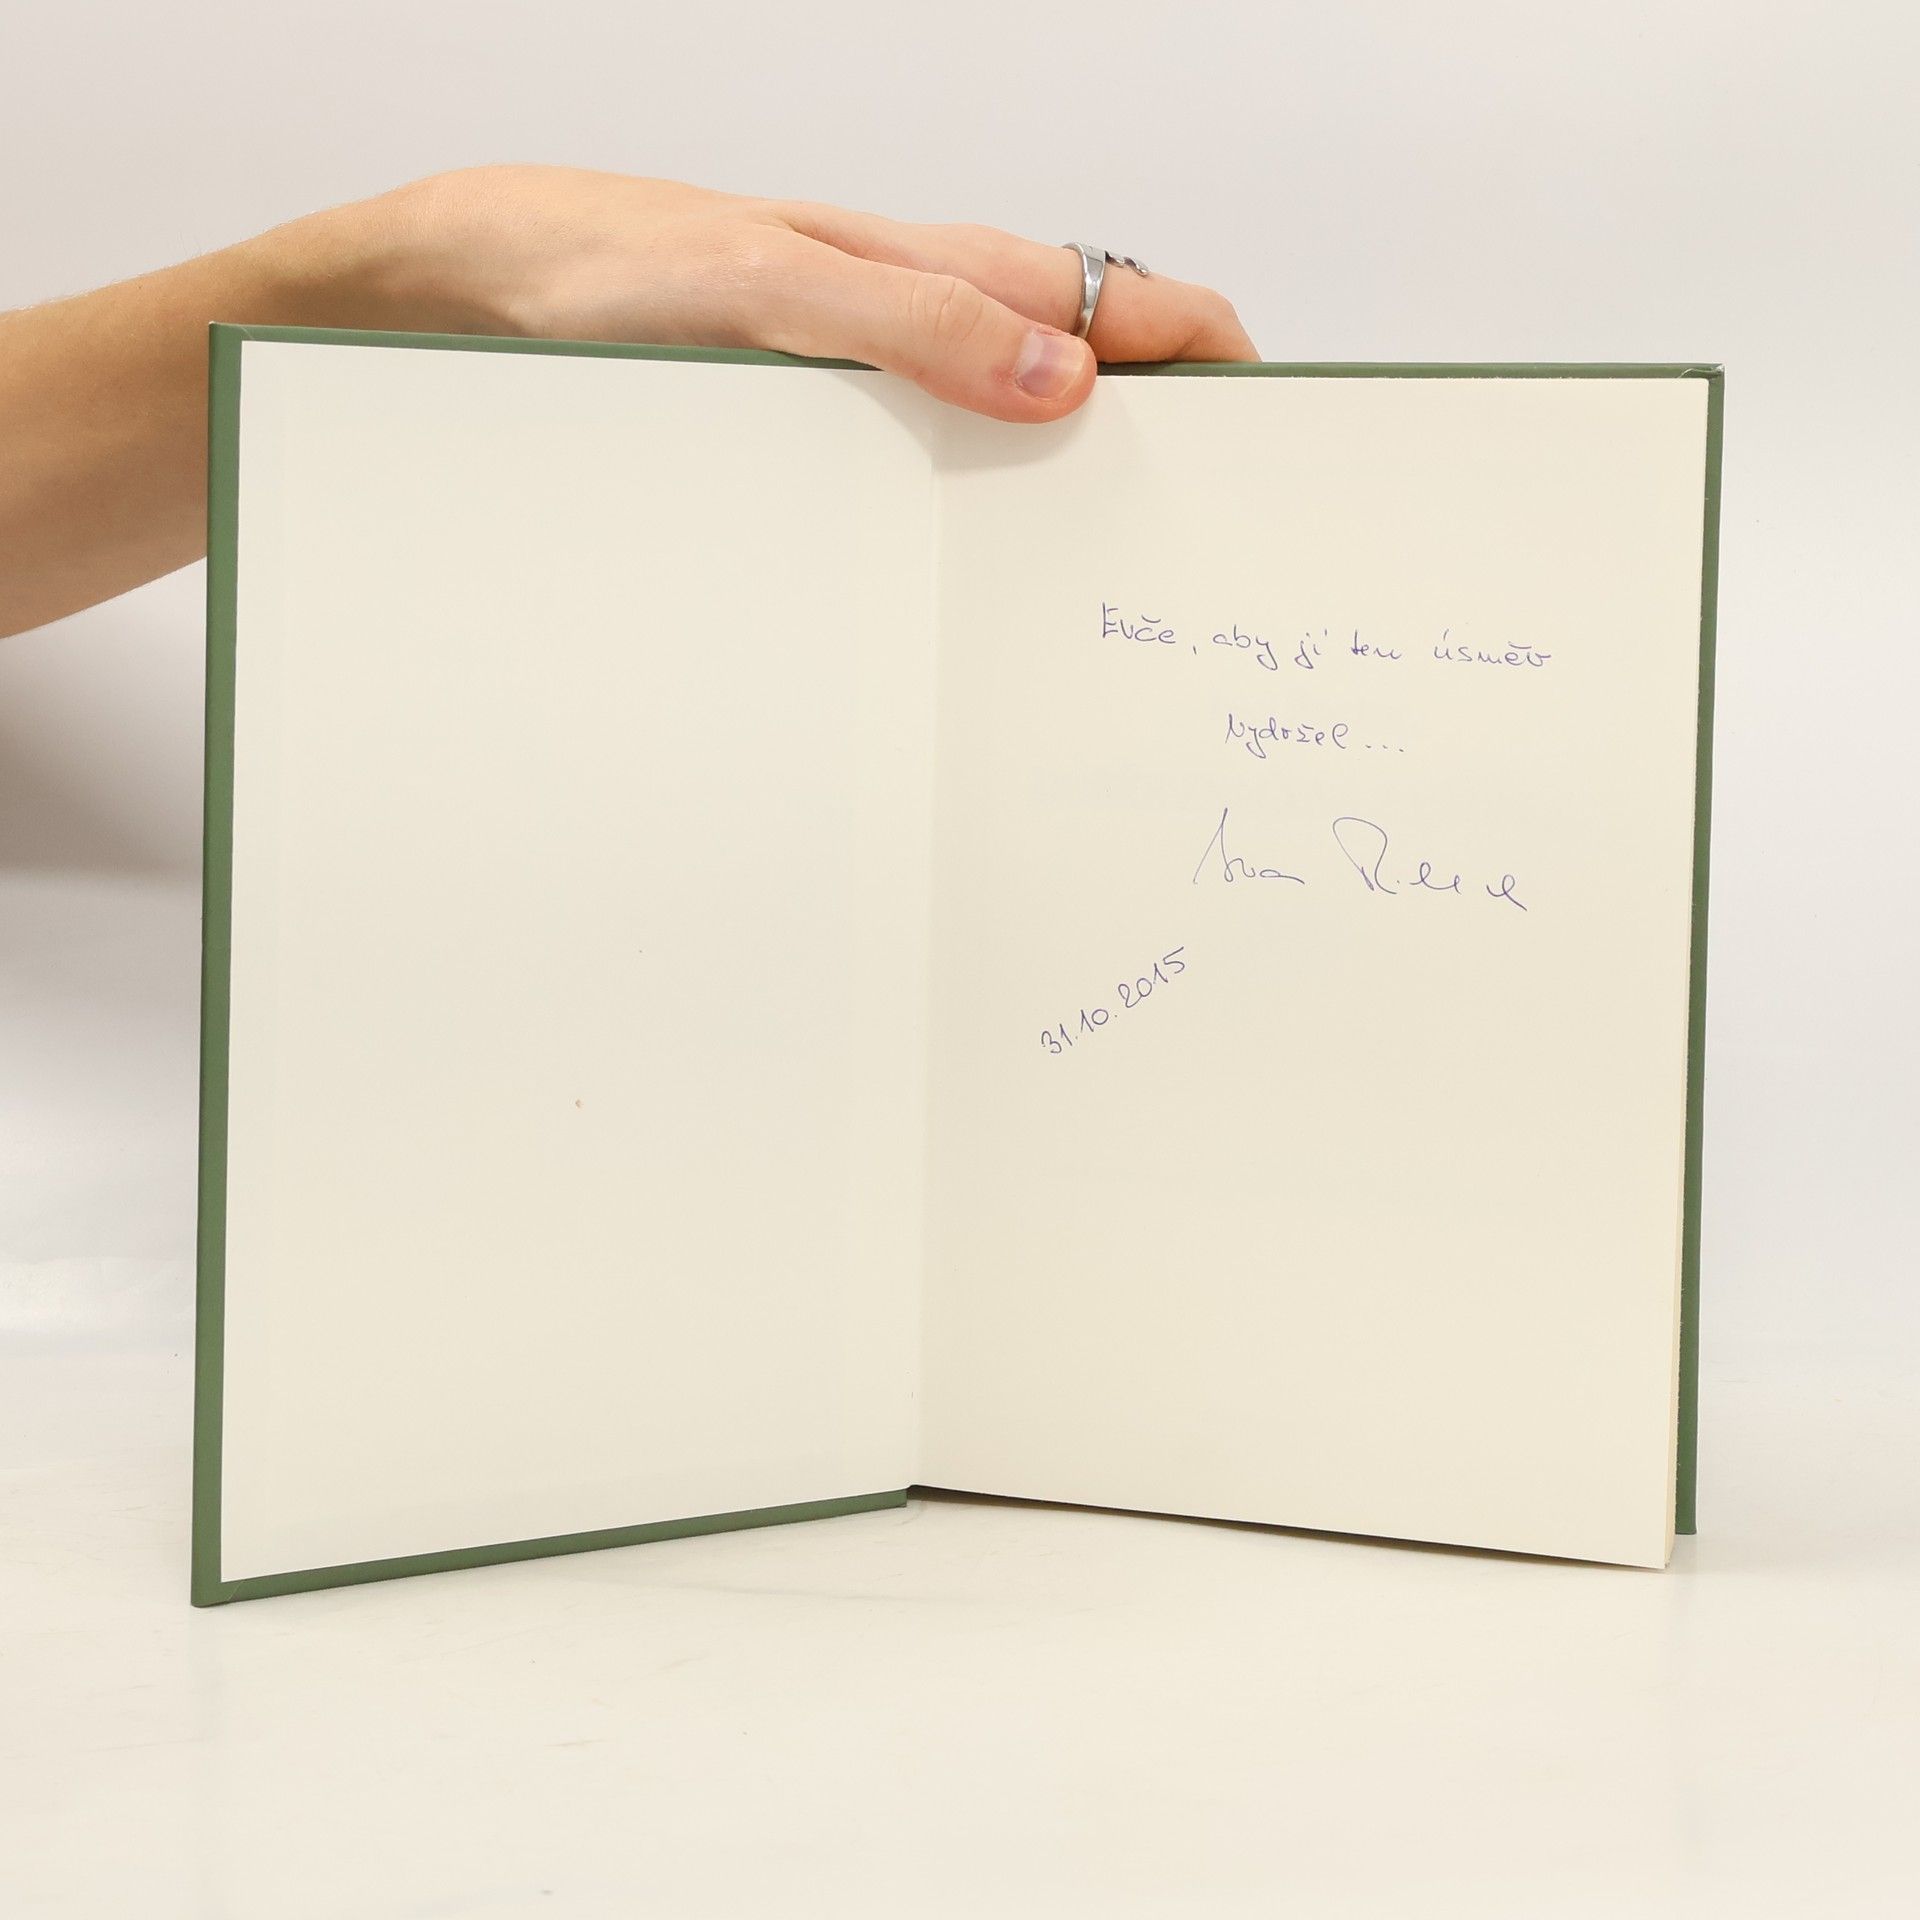 Evče, aby jí ten úsměv
vydržel...
31.10.2015